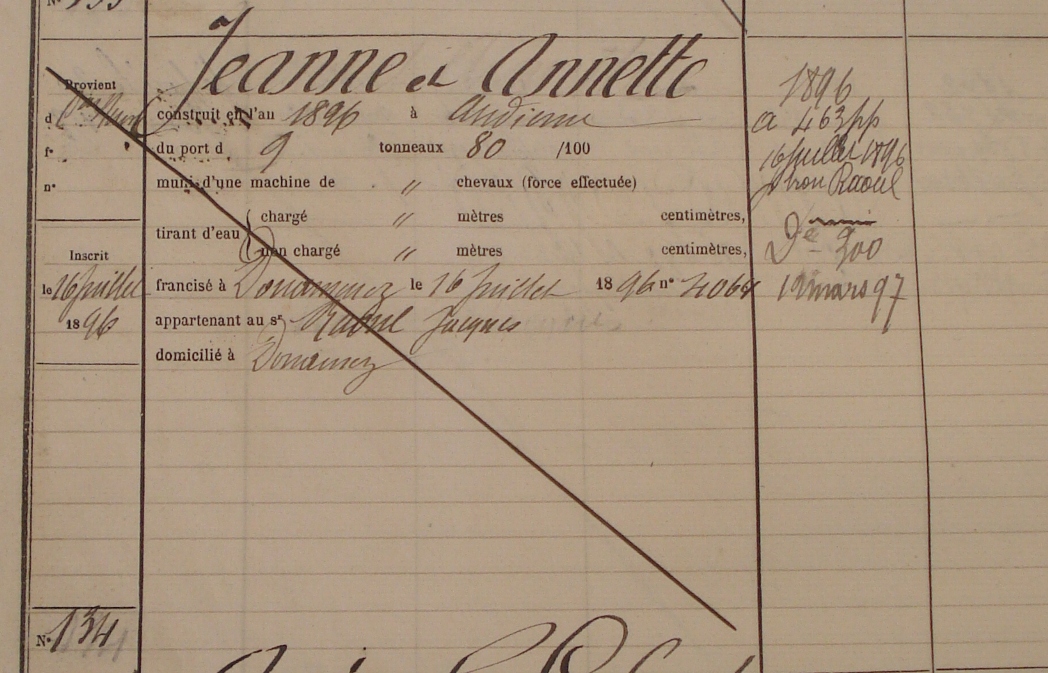 Jeanne et Annette
Provient
d
f°
n°
Inscrit
le 16 Juillet
1896
construit en l'an 1896 à Audierne
du port d 9 tonneaux 80 /100
muni d'une machine de " chevaux (force effectuée)
tirant d'eau
chargé " mètres centimètres,
non chargé " mètres centimètres,
francisé à Douarnenez le 16 Juillet 1896 n°
appartenant au sr Raoul Jacques
domicilié à Douarnenez
1896
a 463 pp
16 Juillet 1896
Raoul
De 200
12 mars 97
N° 134